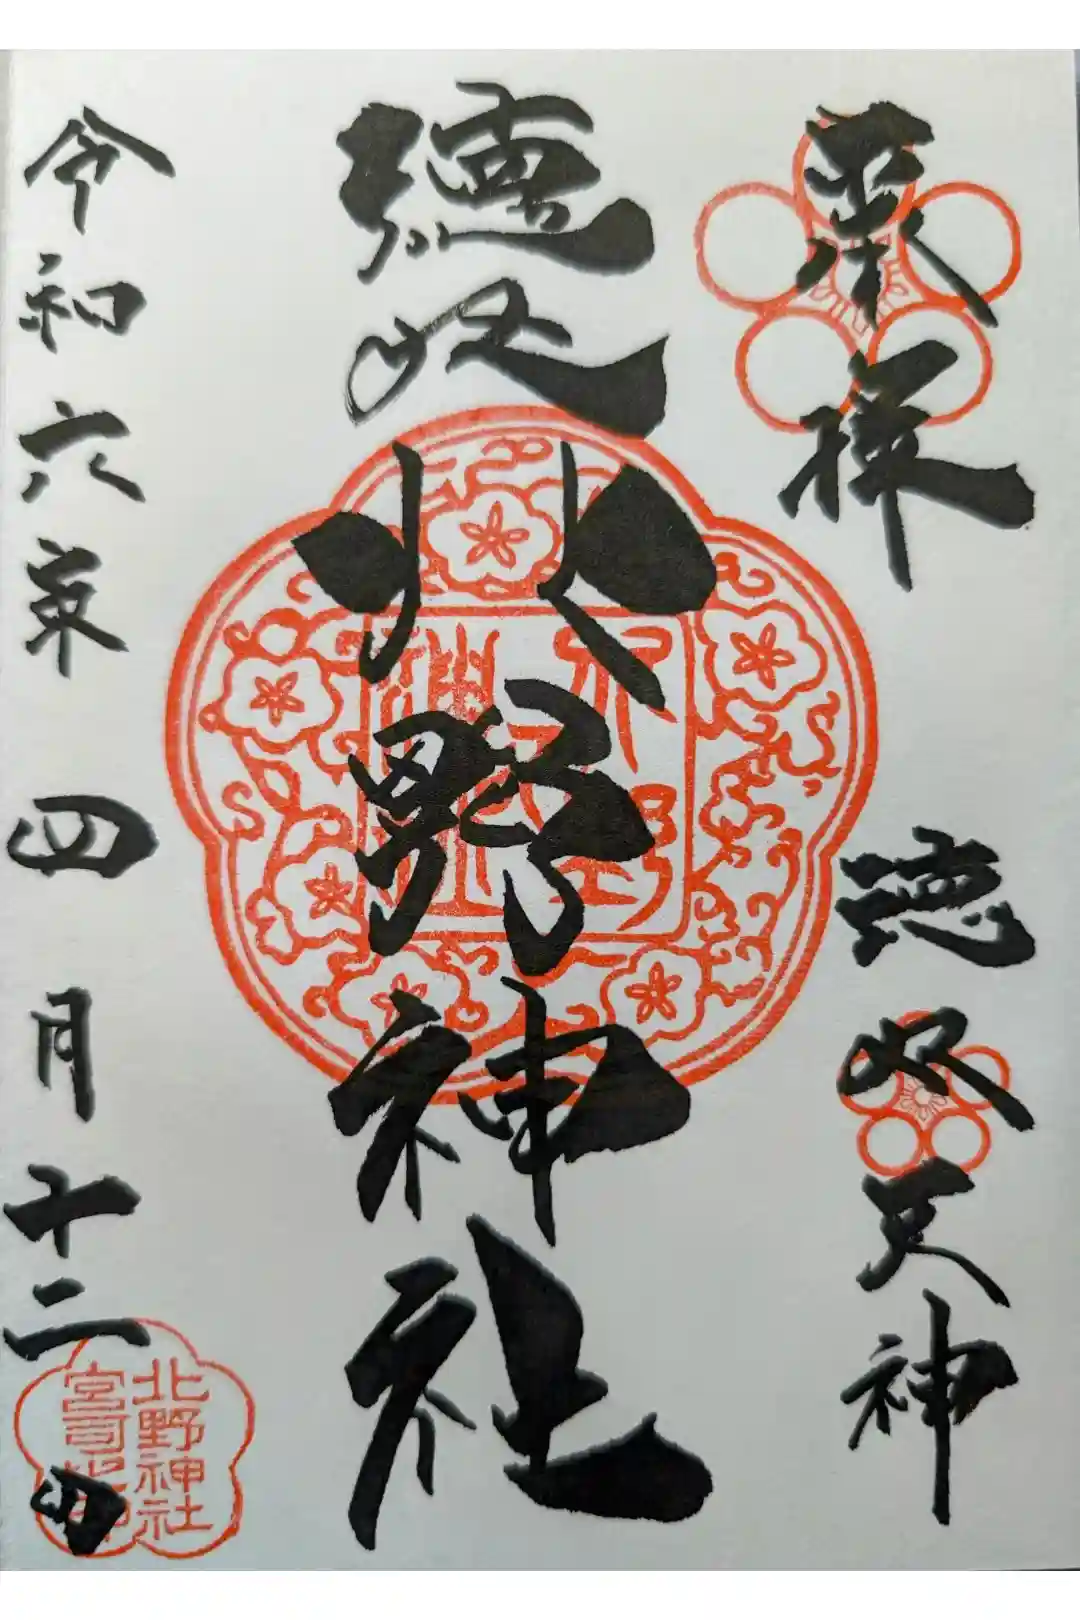 奉拝
徳丸天神
徳丸北野神社
令和六年四月十二日
北野神社
宮司之印